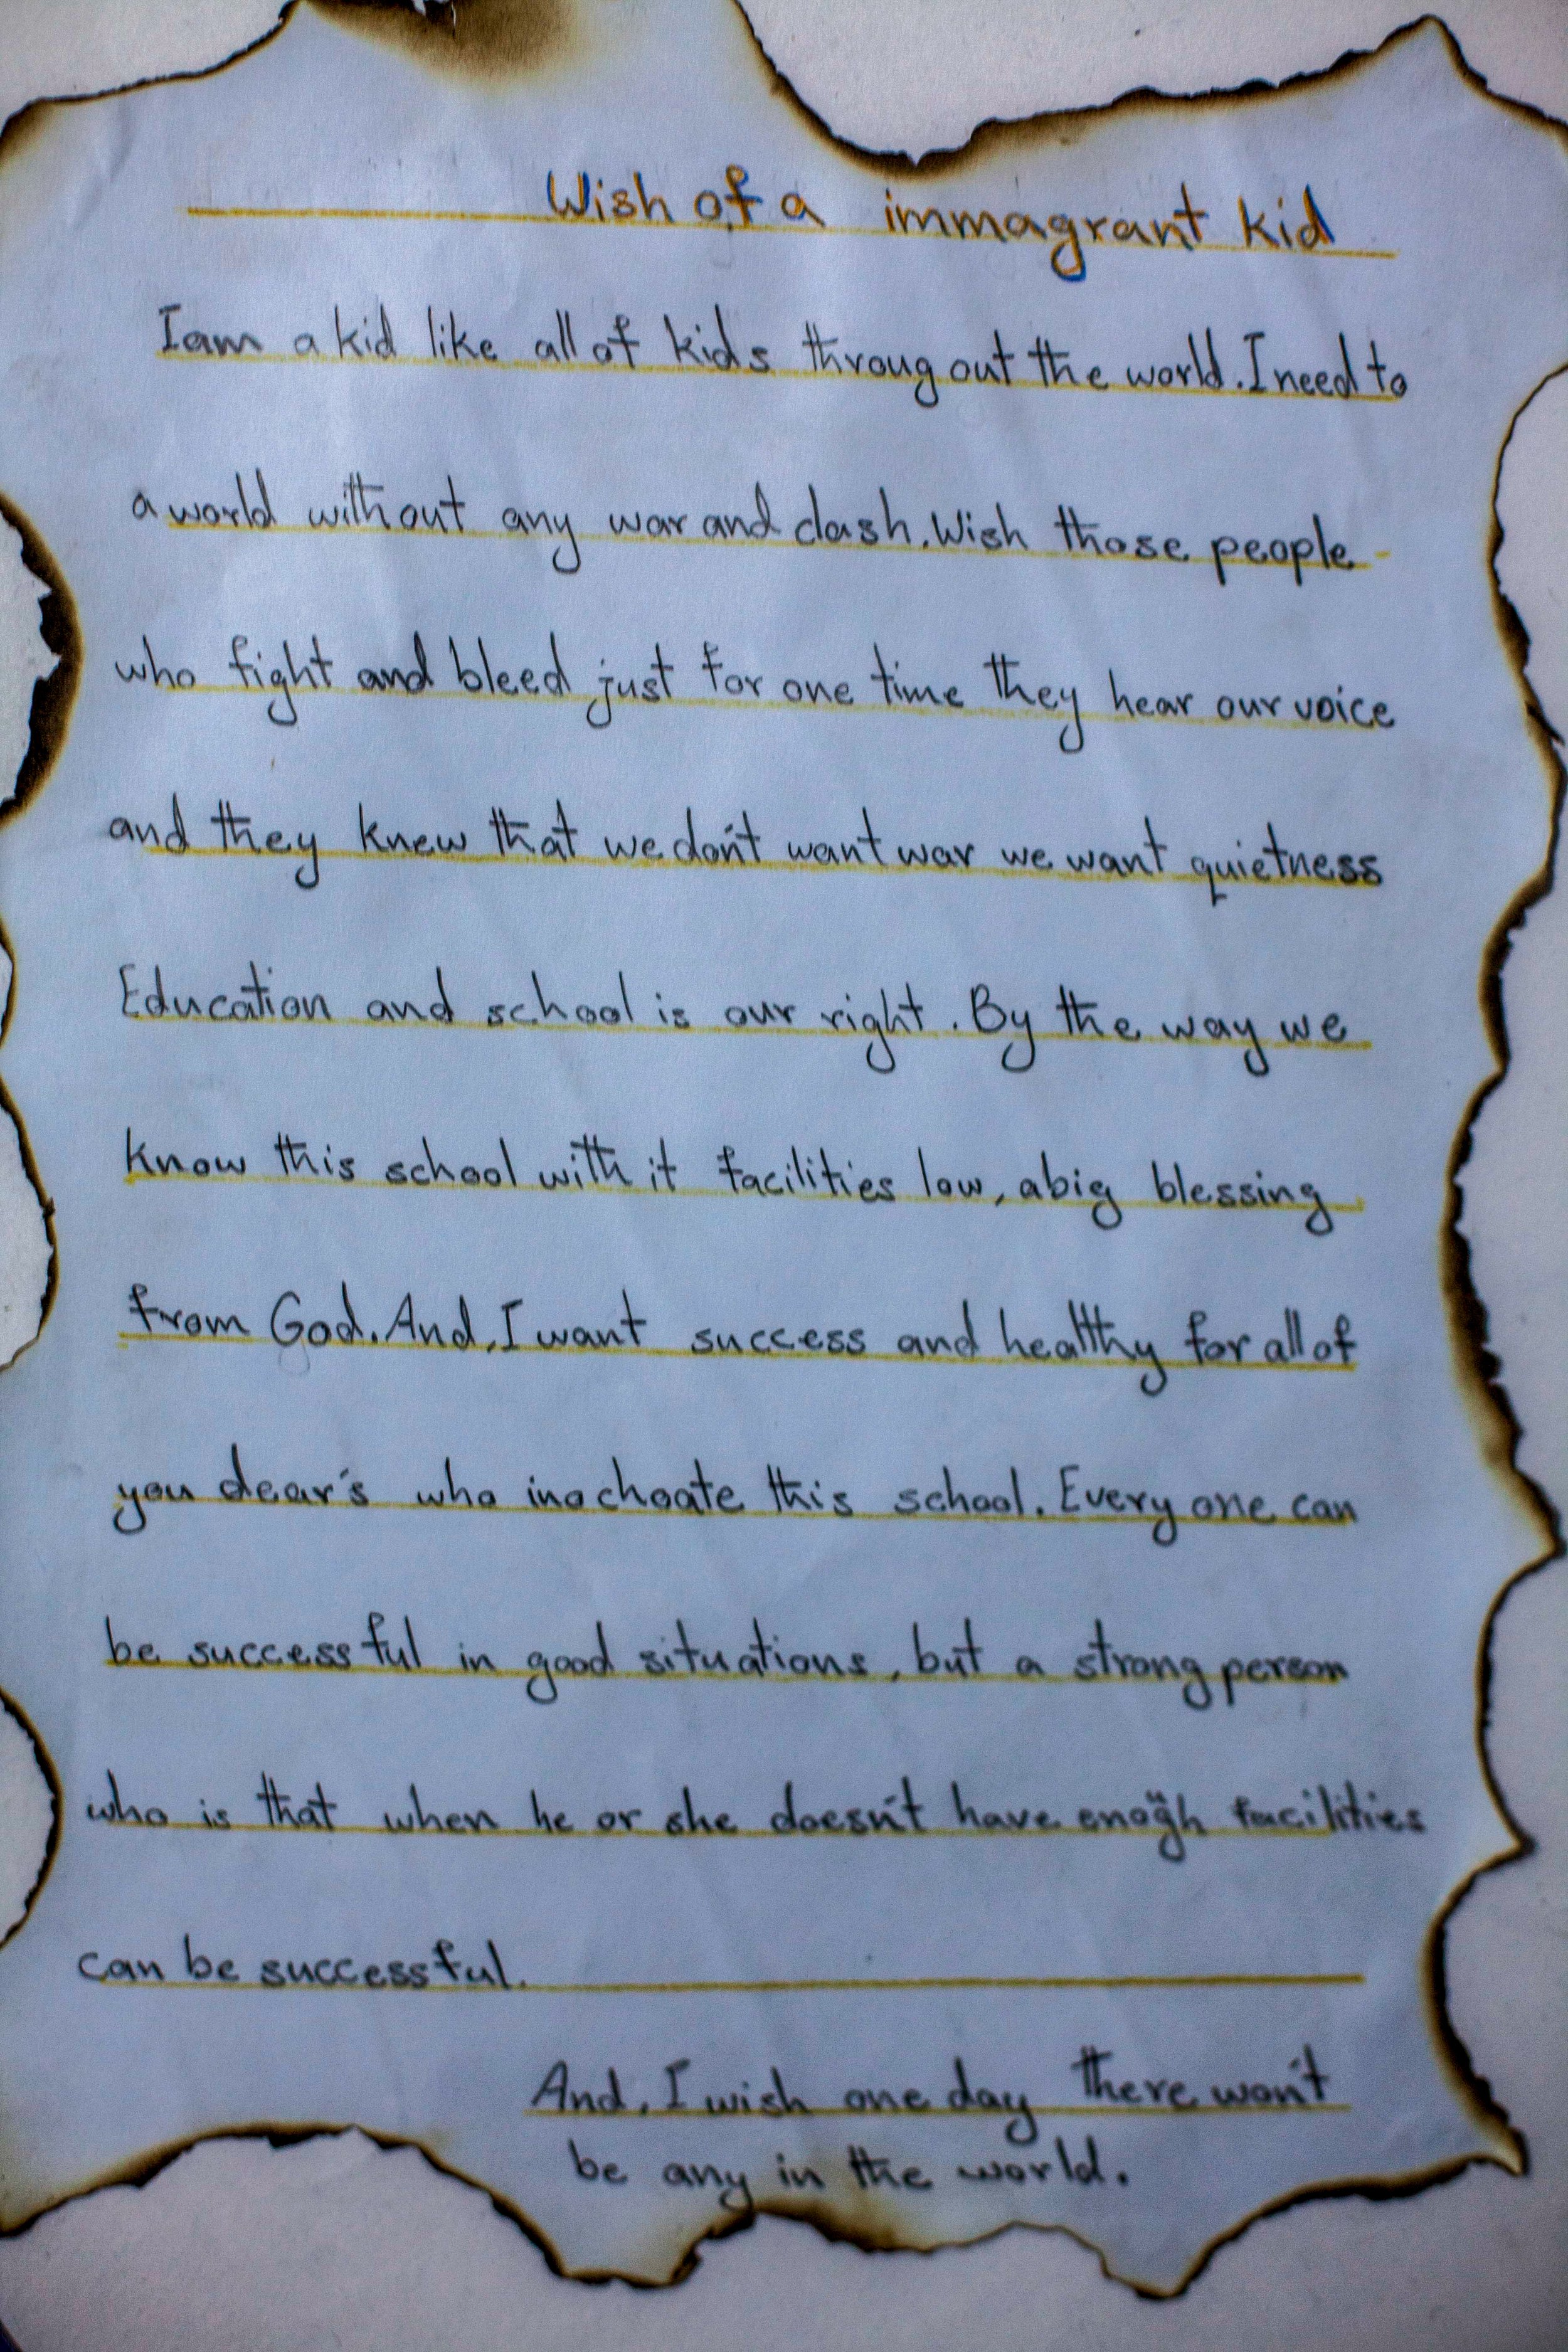 Wish of a immagrant kid
I am a kid like all of kids throug out the world. I need to
a world without any war and clash. Wish those people
who fight and bleed just for one time they hear our voice
and they knew that we don't want war we want quietness
Education and school is our right. By the way we
know this school with it facilities low, a big blessing
from God. And, I want success and healthy for all of
you dear's who inochoate this school. Every one can
be successful in good situations, but a strong person
who is that when he or she doesn't have enough facilities
can be successful.
And, I wish one day there won't
be any in the world.